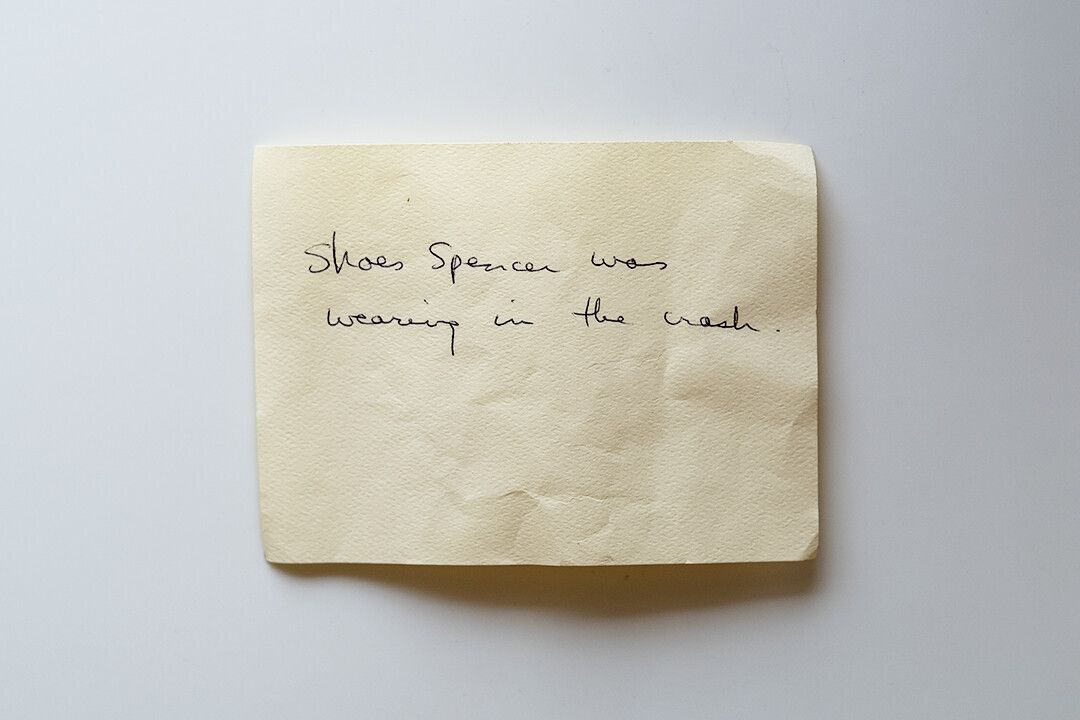 Shoes Spencer was
wearing in the crash.